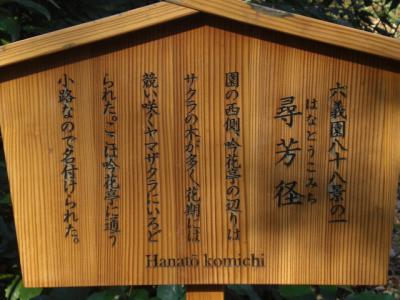 六義園八十八景の一
はなとうこみち
尋芳径
園の西側、吟花亭の辺りは
サクラの木が多く、花期には
競い咲くヤマザクラにいろど
られた。ここは吟花亭に通う
小路なので名付けられた。
Hanatō komichi